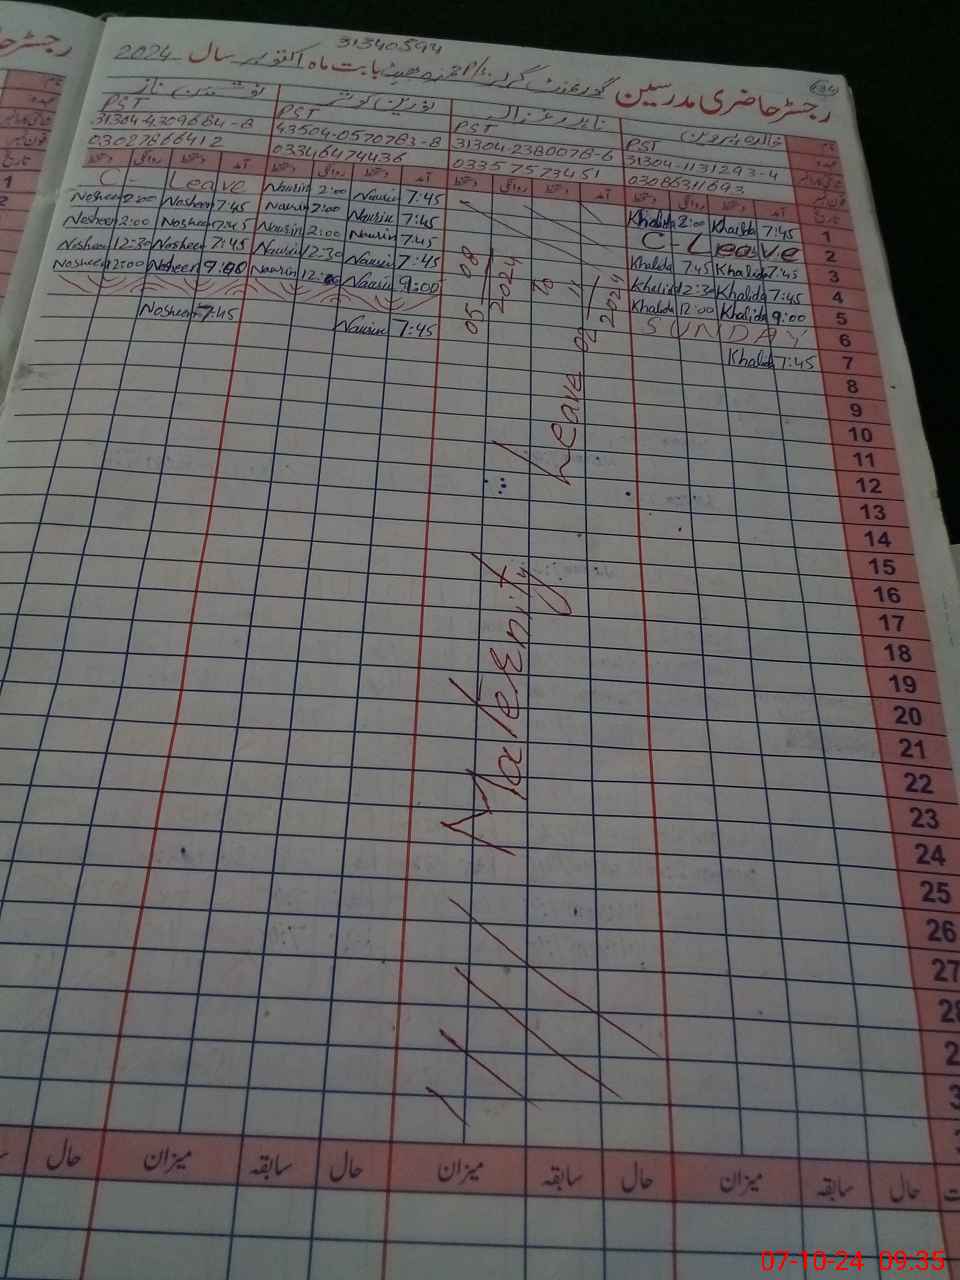 31340594
رجسٹر حاضری مدرسین گورنمنٹ گرلز P/S بابت ماہ اکتوبر سال 2024
خالدہ پروین
PST
31304-1131293-4
03086311693
نائرہ غزالہ
PST
31304-2380078-6
03357573451
نورین کوثر
PST
43504-0570783-8
03346474436
نوشین ناز
PST
31304-4309684-8
03027866412
تاریخ آمد دستخط روانگی دستخط آمد دستخط روانگی دستخط آمد دستخط روانگی دستخط آمد دستخط روانگی دستخط
1 7:45 Khalida 2:00 Khalida
C-Leave
2 C-Leave
7:45 Naurin 2:00 Naurin
7:45 Nosheen 2:00 Nosheen
3 7:45 Khalida 7:45 Khalida
7:45 Naurin 2:00 Naurin
7:45 Nosheen 2:00 Nosheen
4 7:45 Khalida 12:30 Khalida
7:45 Naurin 12:30 Naurin
7:45 Nosheen 12:30 Nosheen
5 9:00 Khalida 12:00 Khalida
9:00 Naurin 12:00 Naurin
9:00 Nosheen 12:00 Nosheen
6 SUNDAY
7 7:45 Khalida
7:45 Naurin
7:45 Nosheen
Maternity Leave
05 08 2024
To
02 11 2024
8
9
10
11
12
13
14
15
16
17
18
19
20
21
22
23
24
25
26
27
28
حال سابقہ میزان حال سابقہ میزان حال سابقہ میزان حال
07-10-24 09:35